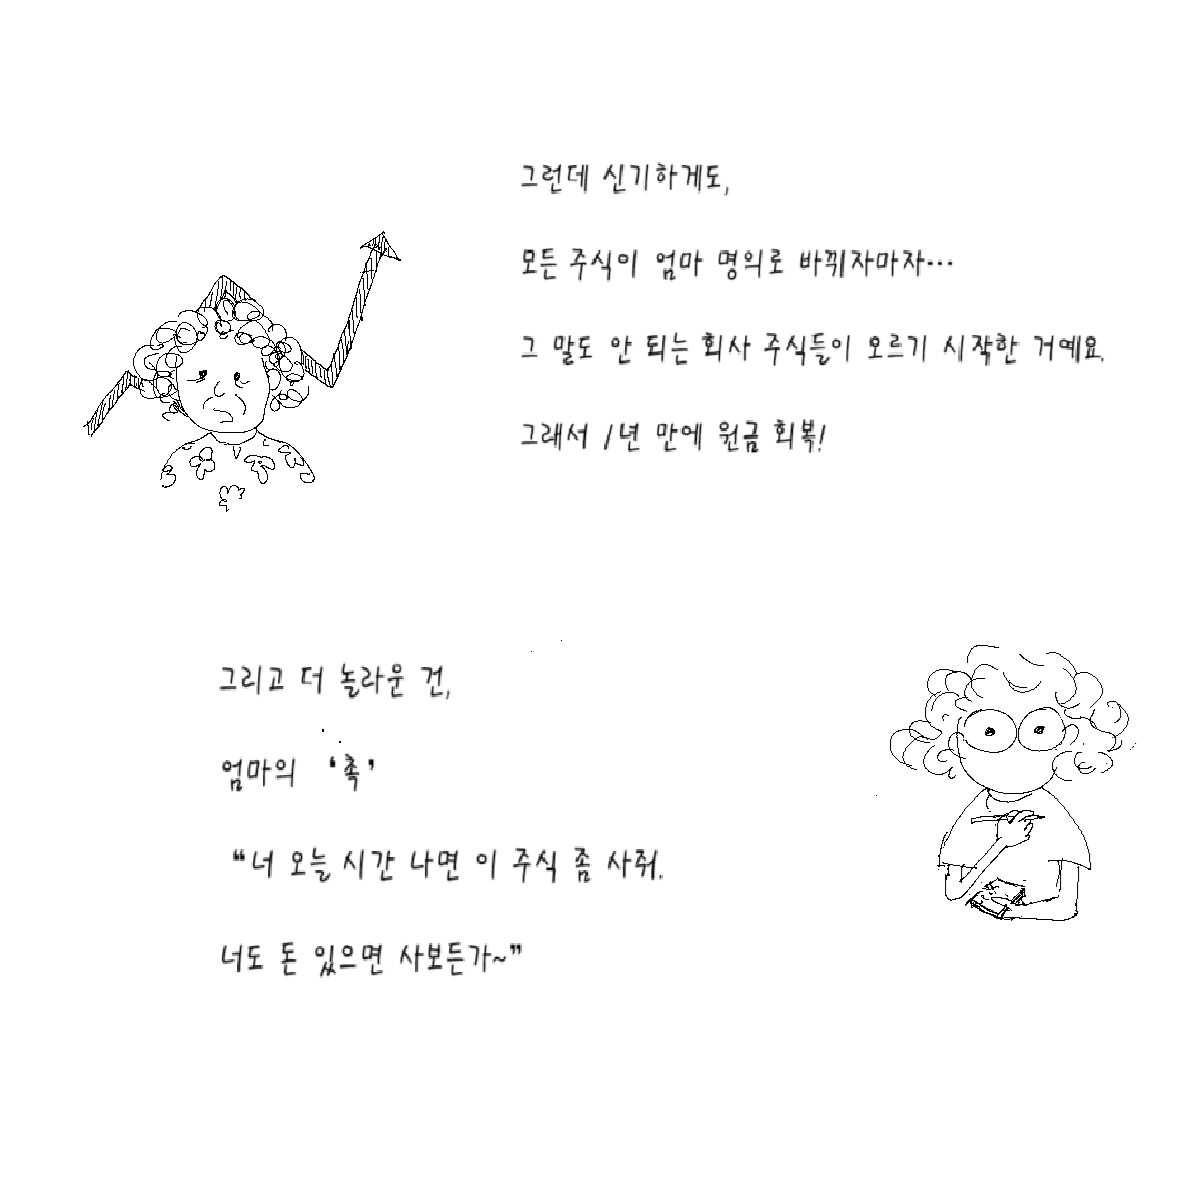 그런데 신기하게도,
모든 주식이 엄마 명의로 바뀌자마자...
그 말도 안 되는 회사 주식들이 오르기 시작한 거예요.
그래서 1년 만에 원금 회복!
그리고 더 놀라운 건,
엄마의 '촉'
"너 오늘 시간 나면 이 주식 좀 사줘.
너도 돈 있으면 사보든가~"